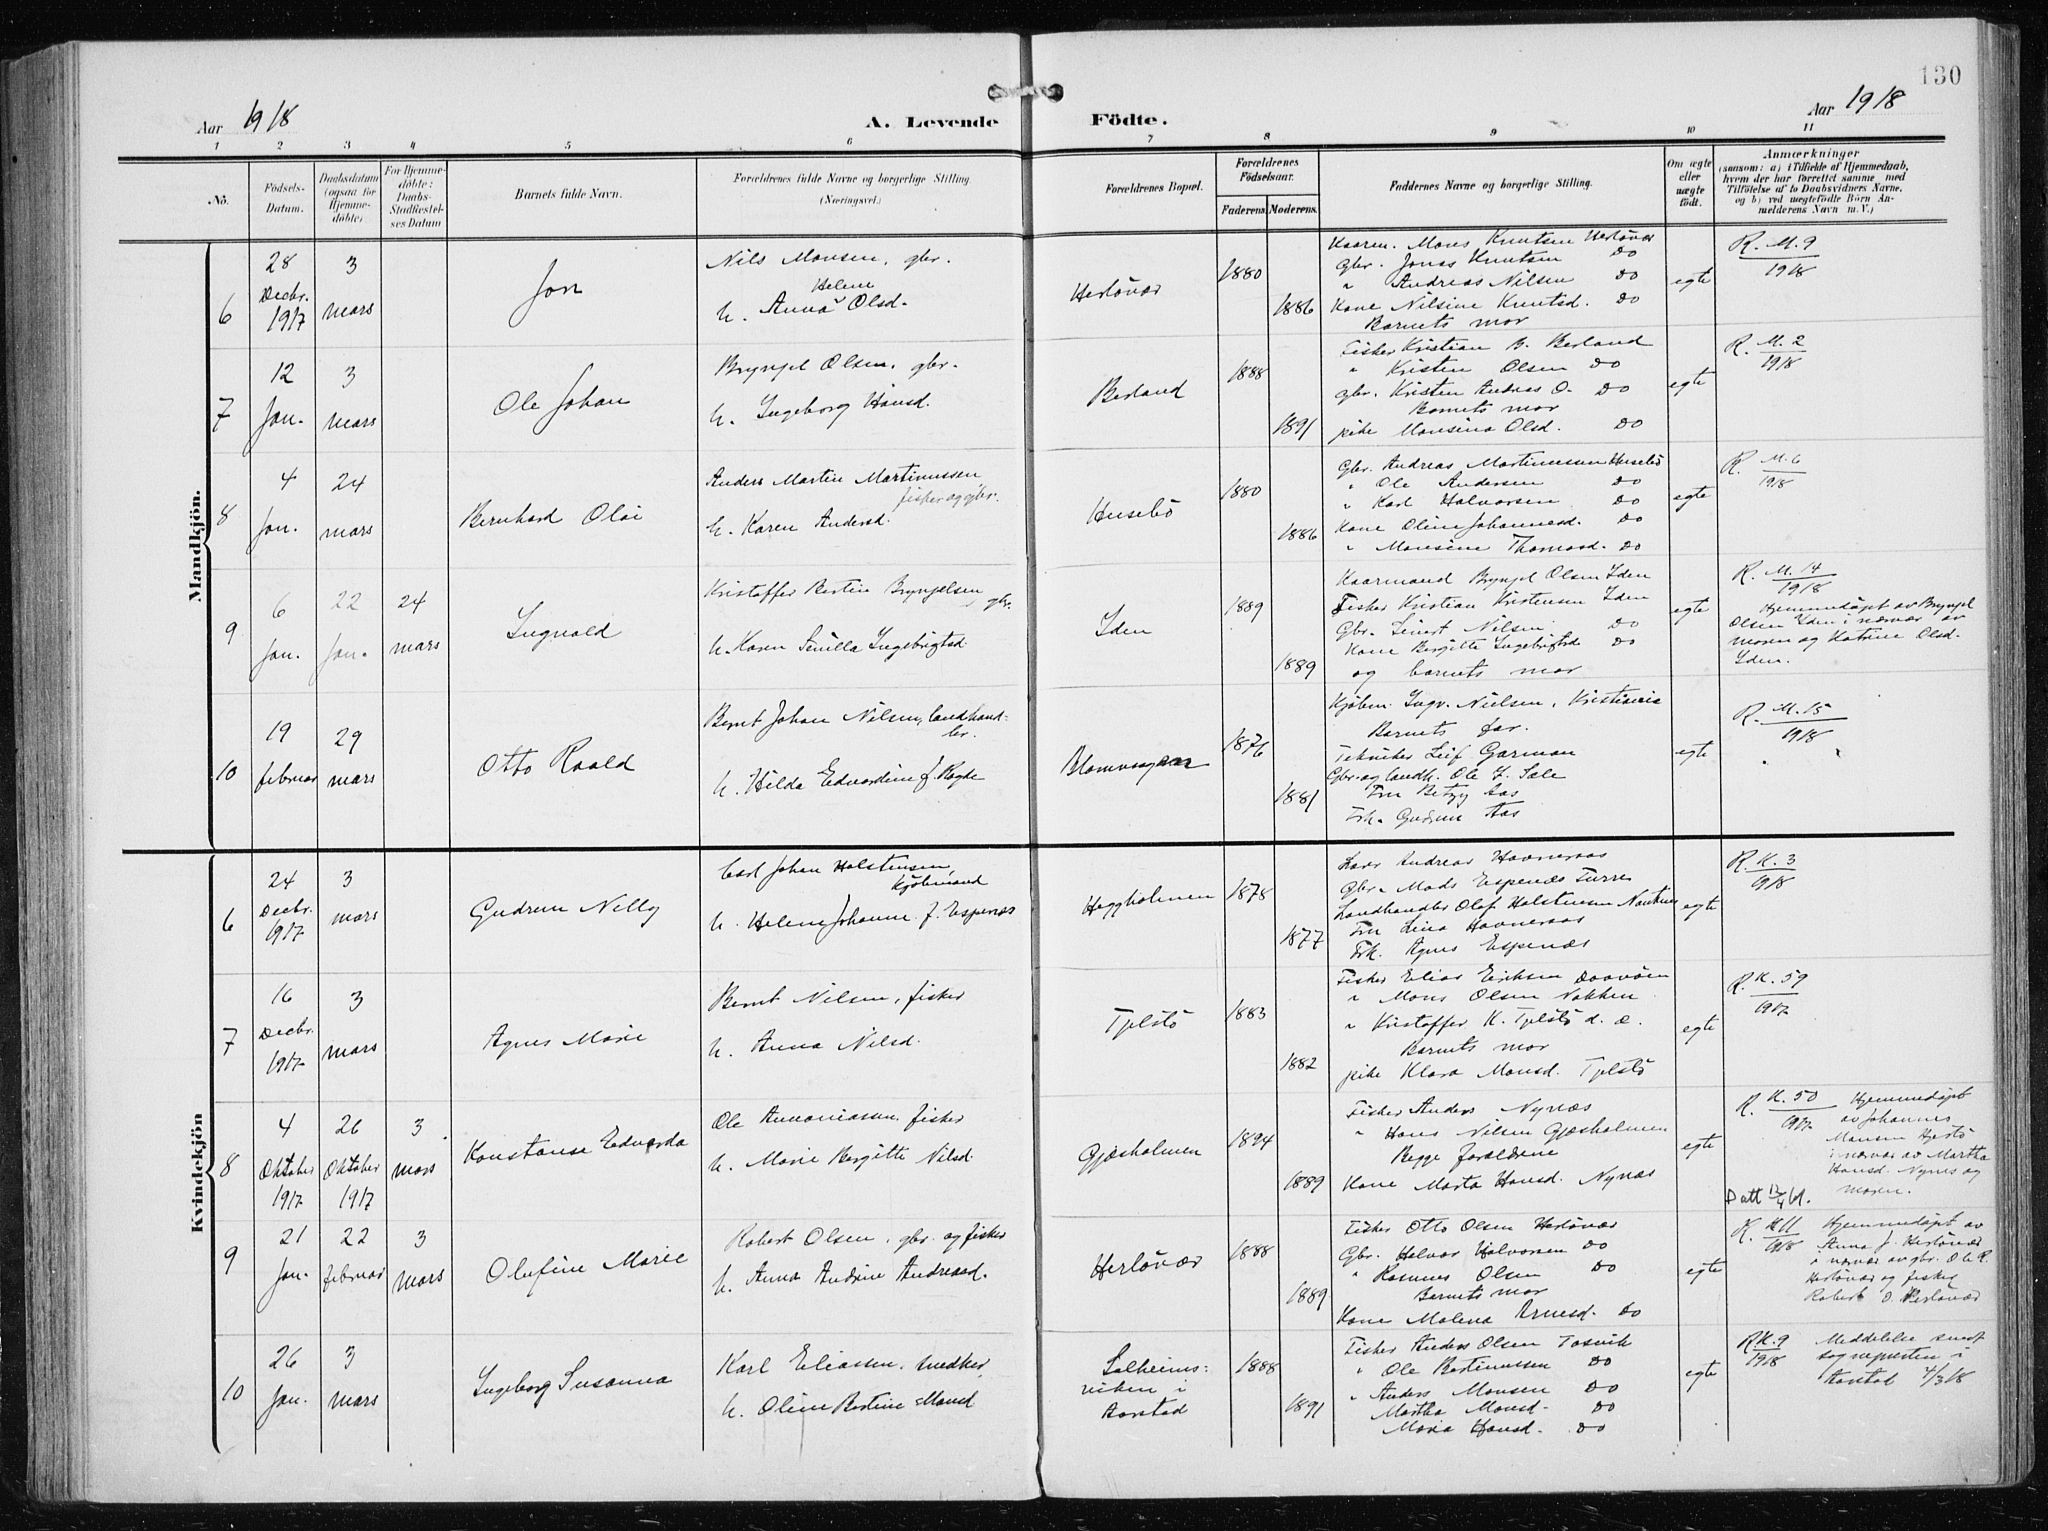 130
Aar 1918
A. Levende Födte.
Aar 1918
1 2 3 4 5 6 7 8 9 10 11
No.
Födsels-Datum.
Daabsdatum (ogsaa for Hjemme-döbte)
For Hjemme-döbte: Daabs-Stadfæstel-ses Datum
Barnets fulde Navn.
Forældrenes fulde Navne og borgerlige Stilling.
(Næringsvei.)
Forældrenes Bopæl.
Forældrenes Födselsaar.
Faderens. Moderens.
Faddernes Navne og borgerlige Stilling.
Om ægte eller uægte födt.
Anmærkninger
(saasom: a) i Tilfælde af Hjemmedaab, hvem der har forrettet samme med Tilföielse af to Daabsvidners Navne, og b) ved uægtefödte Börn An-melderens Navn m. V.)
Mandkjön.
6
28 Decbr. 1917
3 mars
Jon
Nils Monsen, gbr.
h. Anna Helene Olsd.
Herlövær
1880
1886
Kaarm. Mons Knutsen Herlövær
Gbr. Jonas Knutsen Do
" Andreas Nilsen Do
Kone Nilsine Knutsd. Do
Barnets mor
egte
R. M. 9
1918
7
12 Jan.
3 mars
Ole Johan
Bryngel Olsen, gbr.
h. Ingeborg Hansd.
Berland
1888
1891
Fisker Kristian B. Berland
" Kristen Olsen Do
gbr. Kristen Andreas O. Do
Barnets mor
pike Monsina Olsd. Do
egte
R. M. 2
1918
8
4 Jan.
24 mars
Bernhard Olai
Anders Martin Martinussen
fisker og gbr.
h. Karen Andersd.
Husebö
1880
1886
Gbr. Andreas Martinussen Husebö
" Ole Andersen Do
" Karl Halvorsen Do
Kone Oline Johannesd. Do
" Monsine Thomasd. Do
egte
R. M. 6
1918
9
6 Jan.
22 Jan.
24 mars
Ingvald
Kristoffer Bertin Bryngelsen, gbr.
h. Karen Sirilla Ingebrigtsd
Iden
1889
1889
Kaarmand Bryngel Olsen Iden
Fisker Kristian Kristensen Iden
Gbr. Sivert Nilsen Do
Kone Bergitte Ingebrigtsd Do
og barnets mor
egte
R. M. 14
1918
Hjemmedöpt av Bryngel
Olsen Iden i nærvær av
moren og Katrine Olsd.
Iden.
10
19 februar
29 mars
Otto Roald
Bernt Johan Nilsen, landhand-
ler.
h. Hilda Edvardine f. Rogde
Blomvaagen
1876
1881
Kjöbm. Ingv. Nielsen, Kristiania
Barnets far.
Tekniker Leif Garman
Gbr. og landh. Ole I. Sæle
Fru Betzy Aas
Frk. Gudrun Aas
egte
R. M. 15
1918
Kvindekjön
6
24 Decbr. 1917
3 mars
Gudrun Nelly
Carl Johan Holstensen
kjöbmand
h. Helene Johanne f. Espenæs
Heggholmen
1878
1877
Lars Andreas Havneraas
Gbr. Mads Espenæs Turre
Landhandler Olaf Holstensen Nautnes
Fru Lina Havneraas
Frk. Agnes Espenæs
egte
R. K. 3
1918
7
16 Decbr. 1917
3 mars
Agnes Marie
Bernt Nilsen, fisker
h. Anna Nilsd.
Tjelstö
1883
1882
Fisker Elias Eriksen Daavöen
" Mons Olsen Nakken
" Kristoffer K. Tjelstö d. æ.
Barnets mor
pike Klara Monsd. Tjelstö
egte
R. K. 59
1917
8
4 Oktober 1917
26 Oktober 1917
3 mars
Konstanse Edvarda
Ole Annaniassen, fisker
h. Marie Bergitte Nilsd
Gjæsholmen
1894
1889
Fisker Anders Nynæs
" Hans Nilsen Gjæsholmen
Begge forældrene
Kone Marta Hansd. Nynæs
egte
R. K. 50
1917
Hjemmedöpt
av Johannes
Monsen Hjertö
i nærvær av Martha
Hansd. Nynes og
moren.
9
21 Jan.
22 februar
3 mars
Olufine Marie
Robert Olsen, gbr. og fisker
h. Anna Andrine Andreasd.
Herlövær
1888
1889
Fisker Otto Olsen Herlövær
Gbr. Halvor Halvorsen Do
" Rasmus Olsen Do
Barnets mor
Kone Malena Arnesd. Do
egte
R. K. 11
1918
Hjemmedöpt av
Anna J. Herlövær
i nærvær av gbr. Ole R.
Herlövær og fisker
Robert O. Herlövær
10
26 Jan.
3 mars
Ingeborg Susanna
Karl Eliassen, snedker
h. Oline Bertine Monsd
Solheims-
viken i
Aarstad
1888
1891
Fisker Anders Olsen Tosvik
" Ole Bertinussen Do
" Anders Monsen Do
Martha Monsd. Do
Maria Hansd. Do
egte
R. K. 9
1918
Meddelelse sendt
sognepresten i
Aarstad 4/3 18